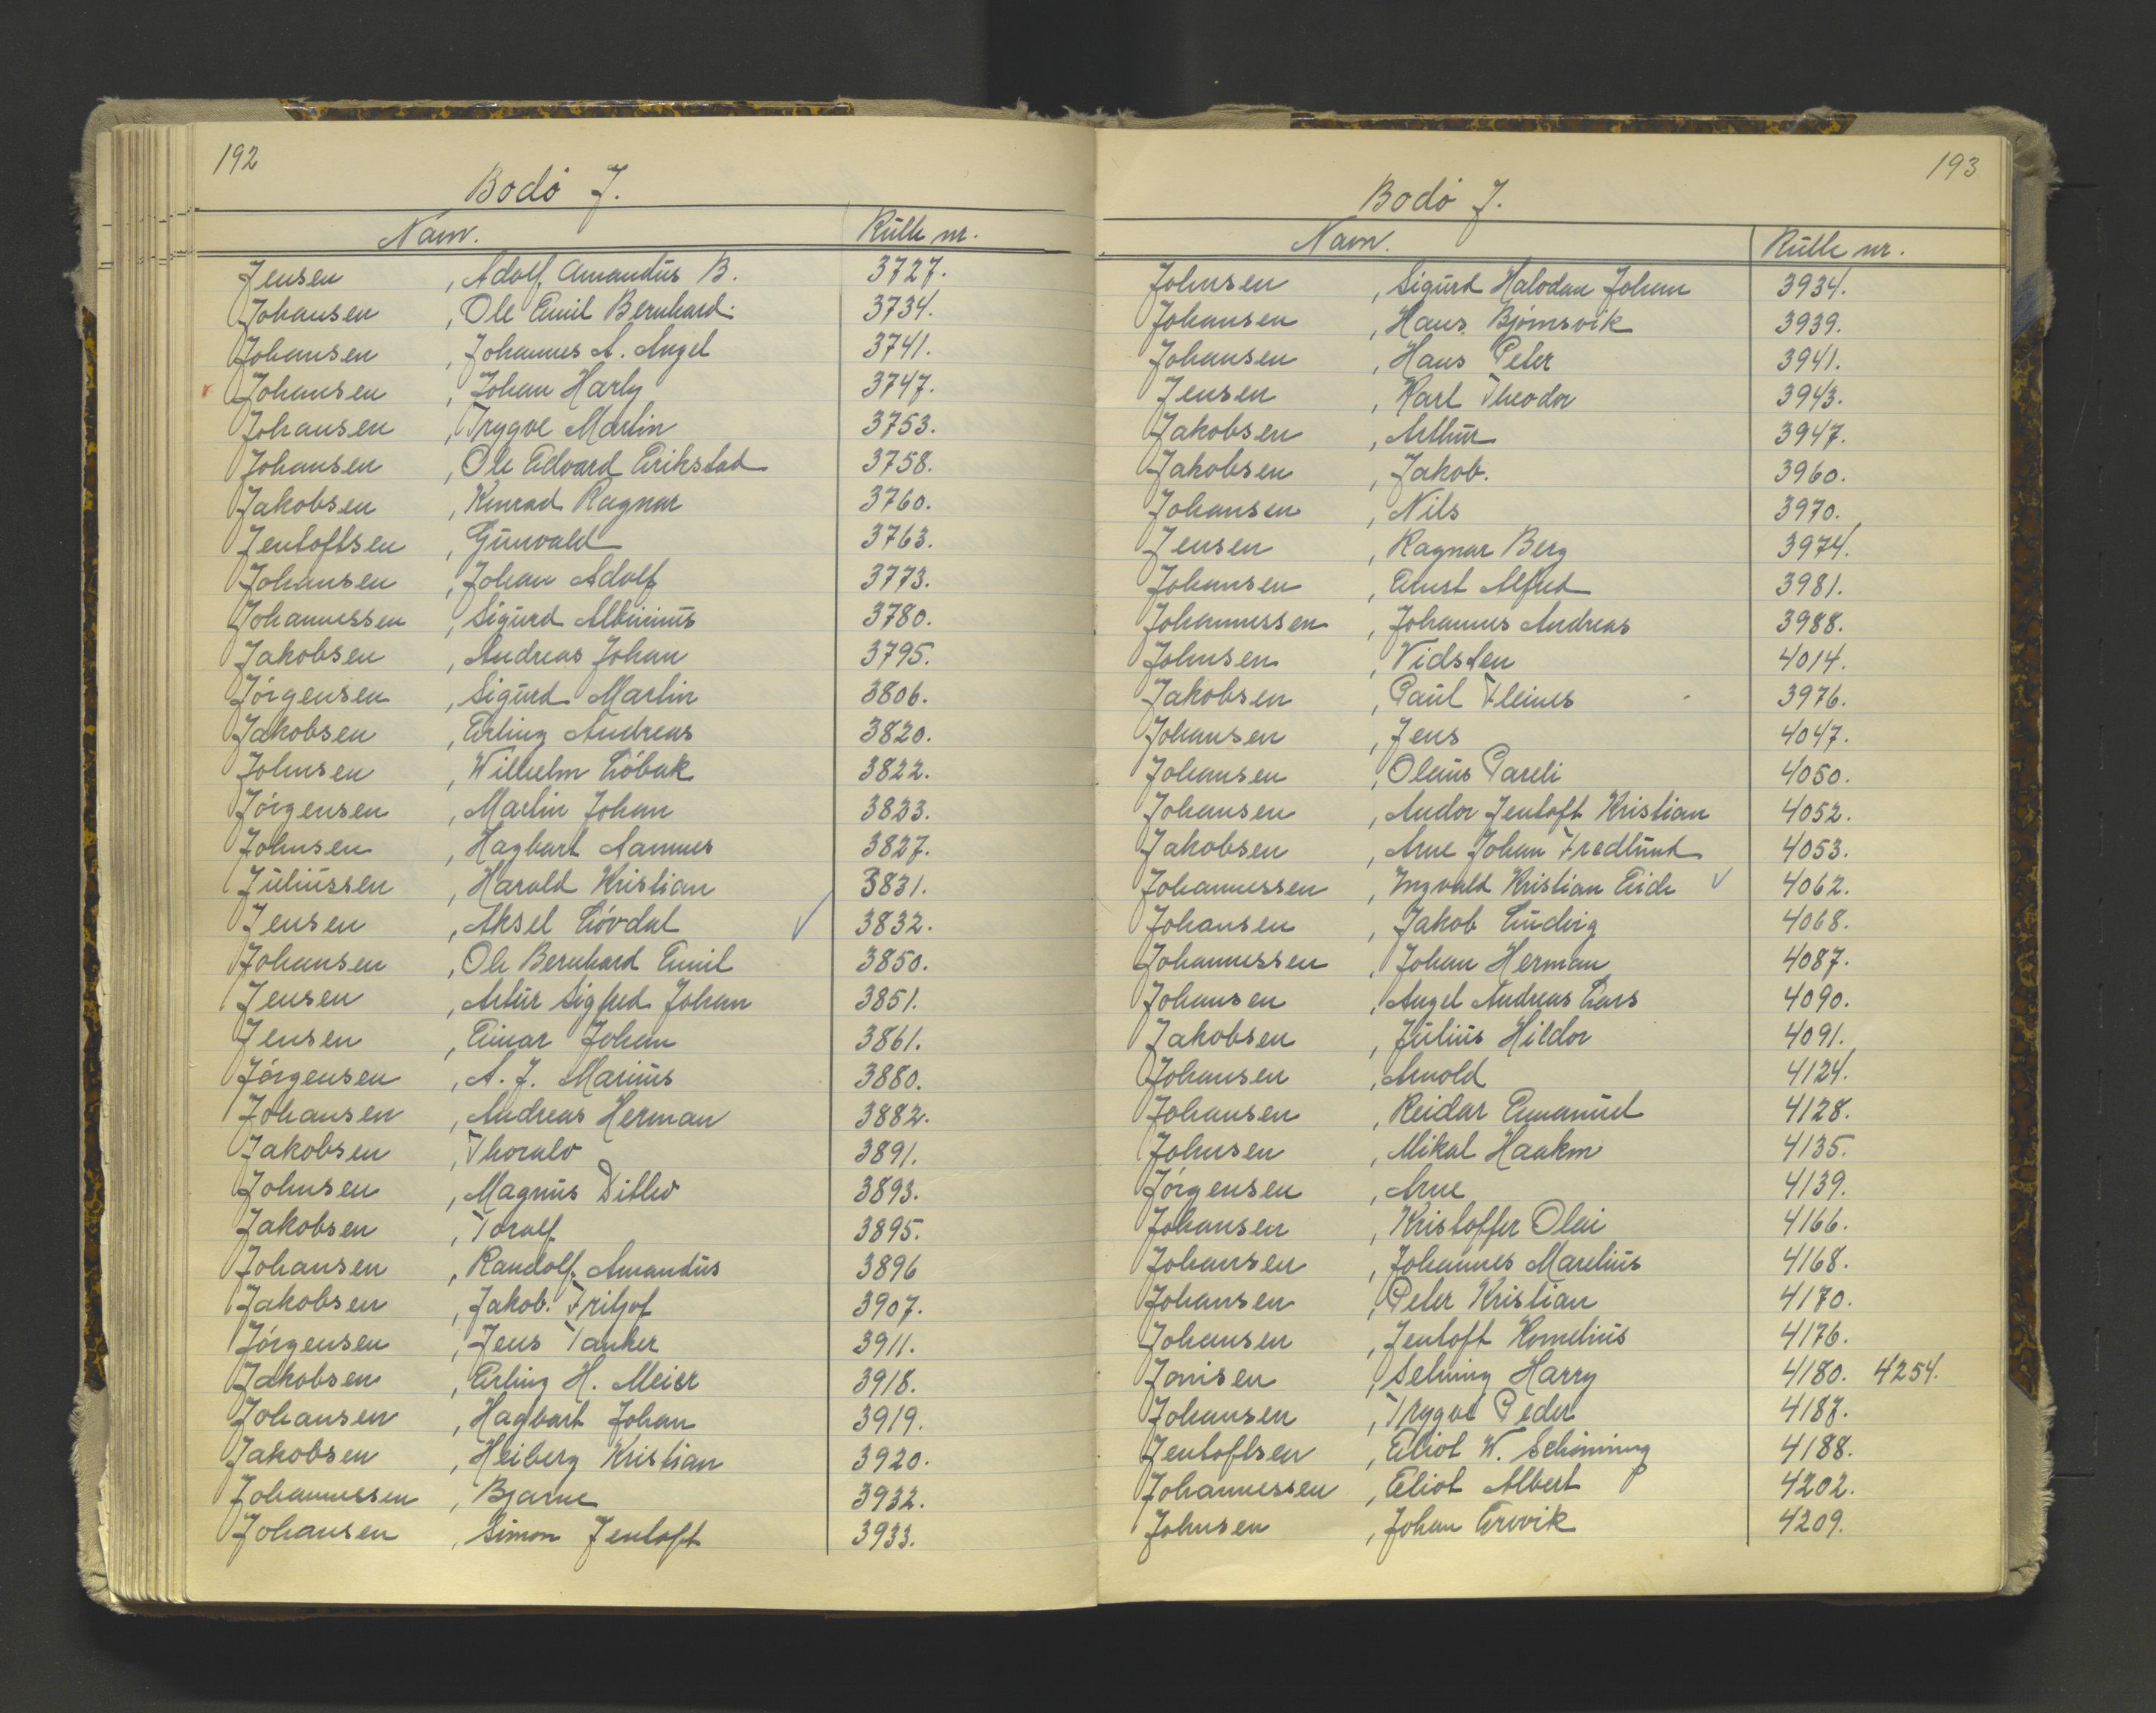 192
Bodø J.
Navn. Rulle nr.
Jensen , Adolf Amandus B. 3727.
Johansen , Ole Emil Bernhard. 3734.
Johansen , Johannes A. Angel 3741.
Johansen , Johan Harly 3747.
Johansen , Trygve Martin 3753.
Johansen , Ole Edvard Erikstad 3758.
Jakobsen , Konrad Ragnar 3760.
Jentoftsen , Gunvald 3763.
Johansen , Johan Adolf 3773.
Johannessen , Sigurd Albinius 3780.
Jakobsen , Andreas Johan 3795.
Jørgensen , Sigurd Martin 3806.
Jakobsen , Erling Andreas 3820.
Johnsen , Wilhelm Løbak 3822.
Jørgensen , Martin Johan 3823.
Johnsen , Hagbart Aannes 3827.
Juliussen , Harald Kristian 3831.
Jensen , Aksel Løvdal ✓ 3832.
Johansen , Ole Bernhard Emil 3850.
Jensen , Artur Sigfred Johan 3851.
Jensen , Einar Johan 3861.
Jørgensen , A. J. Marius 3880.
Johansen , Andreas Herman 3882.
Jakobsen , Thoralv 3891.
Johnsen , Magnus Ditlev 3893.
Jakobsen , Toralf 3895.
Johansen , Randolf Amandus 3896
Jakobsen , Jakob Fritjof 3907.
Jørgensen , Jens Tanker 3911.
Jakobsen , Erling H. Meier 3918.
Johansen , Hagbart Johan 3919.
Jakobsen , Heiberg Kristian 3920.
Johannessen , Bjarne 3932.
Johansen , Simon Jentoft 3933.
193
Bodø J.
Navn. Rulle nr.
Johnsen , Sigurd Halvdan Johan 3934.
Johansen , Hans Bjørnsvik 3939.
Johansen , Hans Peter 3941.
Jensen , Karl Theodor 3943.
Jakobsen , Arthur 3947.
Jakobsen , Jakob. 3960.
Johansen , Nils 3970.
Jensen , Ragnar Berg 3974.
Johansen , Ernst Alfred 3981.
Johannessen , Johannes Andreas 3988.
Johnsen , Vidsten 4014.
Jakobsen , Paul Fleines 3976.
Johansen , Jens 4047.
Johansen , Oleus Pareli 4050.
Johansen , Andor Jentoft Kristian 4052.
Jakobsen , Arne Johan Fredlund 4053.
Johannessen , Ingvald Kristian Eide ✓ 4062.
Johansen , Jakob Ludvig 4068.
Johannessen , Johan Herman 4087.
Johansen , Angel Andreas Lars 4090.
Jakobsen , Julius Hildor 4091.
Johansen , Arnold 4124.
Johansen , Reidar Emanuel 4128.
Johnsen , Mikal Haakon 4135.
Jørgensen , Arne 4139.
Johansen , Kristoffer Olai 4166.
Johansen , Johannes Marelius 4168.
Johansen , Peter Kristian 4170.
Johansen , Jentoft Kornelius 4176.
Jonisen , Selning Harry 4180. 4254.
Johansen , Trygve Peder 4187.
Jentoftsen , Eliot W. Schønning 4188.
Johannessen , Eliot Albert 4202.
Johnsen , Johan Ervik 4209.